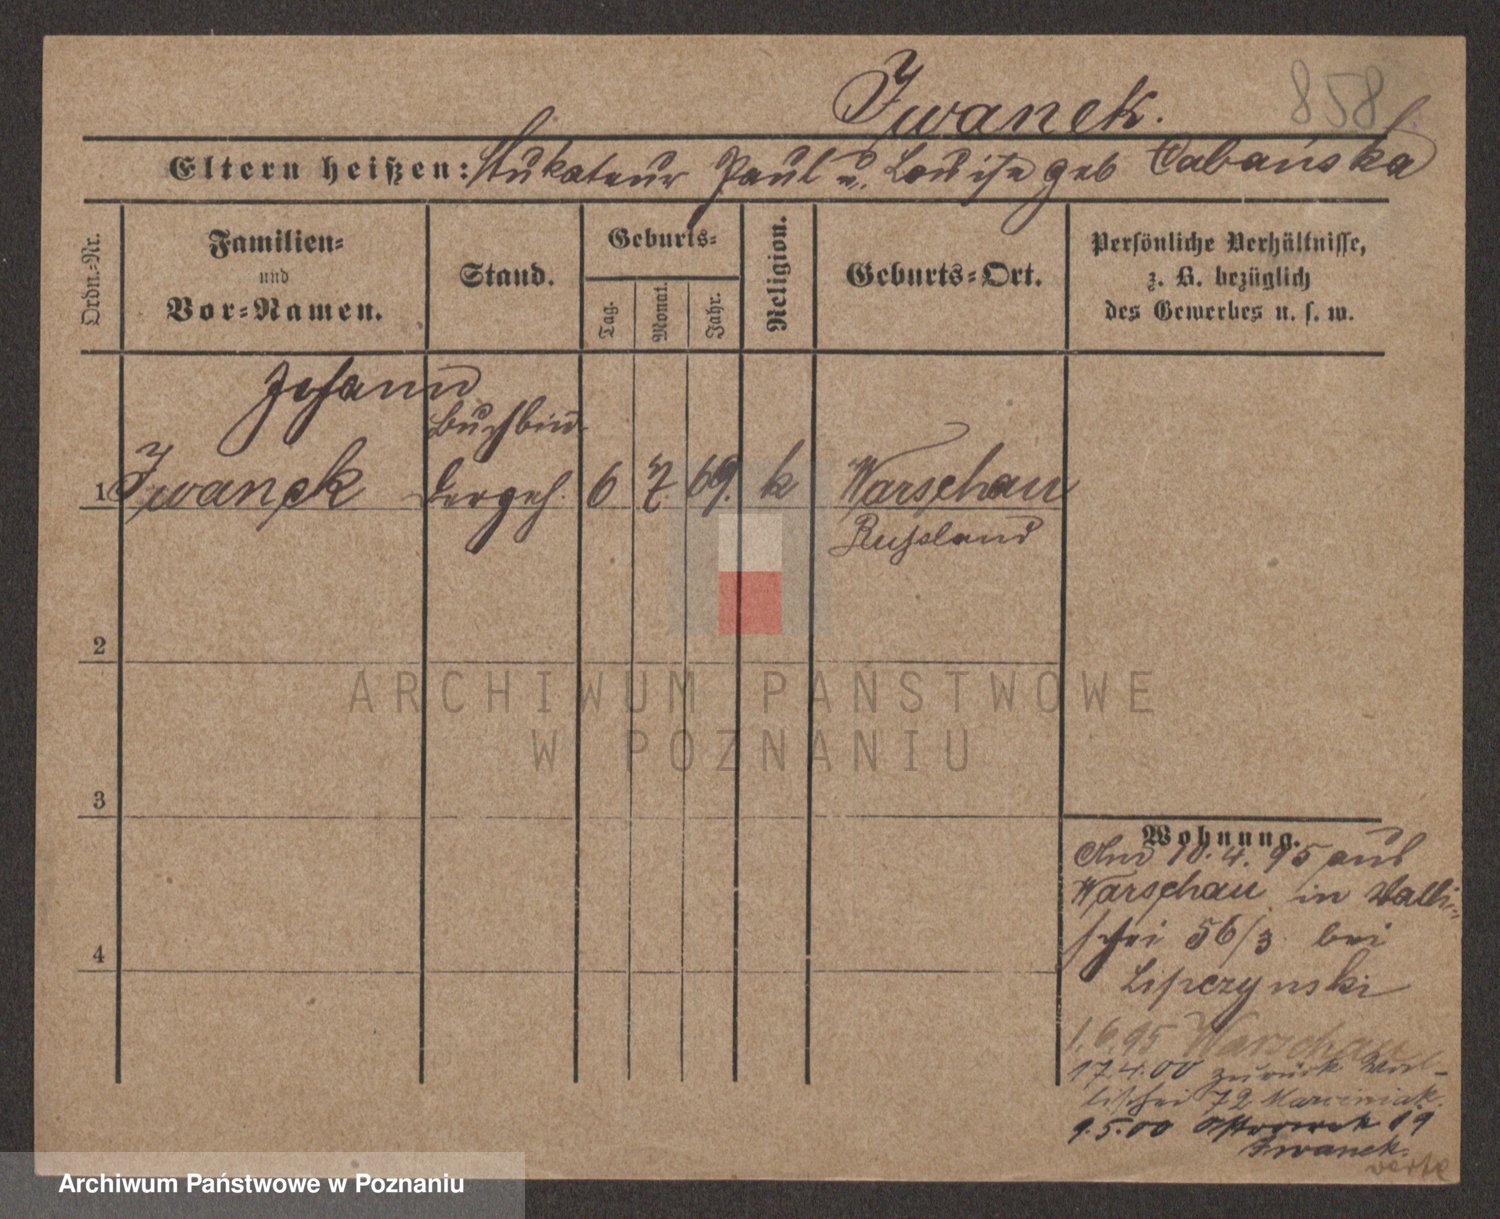 Iwanek.
858
Eltern heißen: Stukateur Paul u. Louise geb Cabańska
Ordn.-Nr.
Familien-
und
Vor-Namen.
Stand.
Geburts-
Tag.
Monat.
Jahr.
Religion.
Geburts-Ort.
Persönliche Verhältnisse,
z. B. bezüglich
des Gewerbes u. s. w.
Johann
Buchbin-
1 Iwanek dergeh. 6 7. 69. k Warschau
Russland
2
ARCHIWUM PAŃSTWOWE
W POZNANIU
3
4
Wohnung.
10.4.95 aus
Warschau in Walli-
schei 56/3 bei
Lipczynski
1.6.95 Warschau
17.4.00 zurück Wal-
lischei 72 Marciniak.
9.5.00 Ostrowek 19
Iwanek.
verte
Archiwum Państwowe w Poznaniu